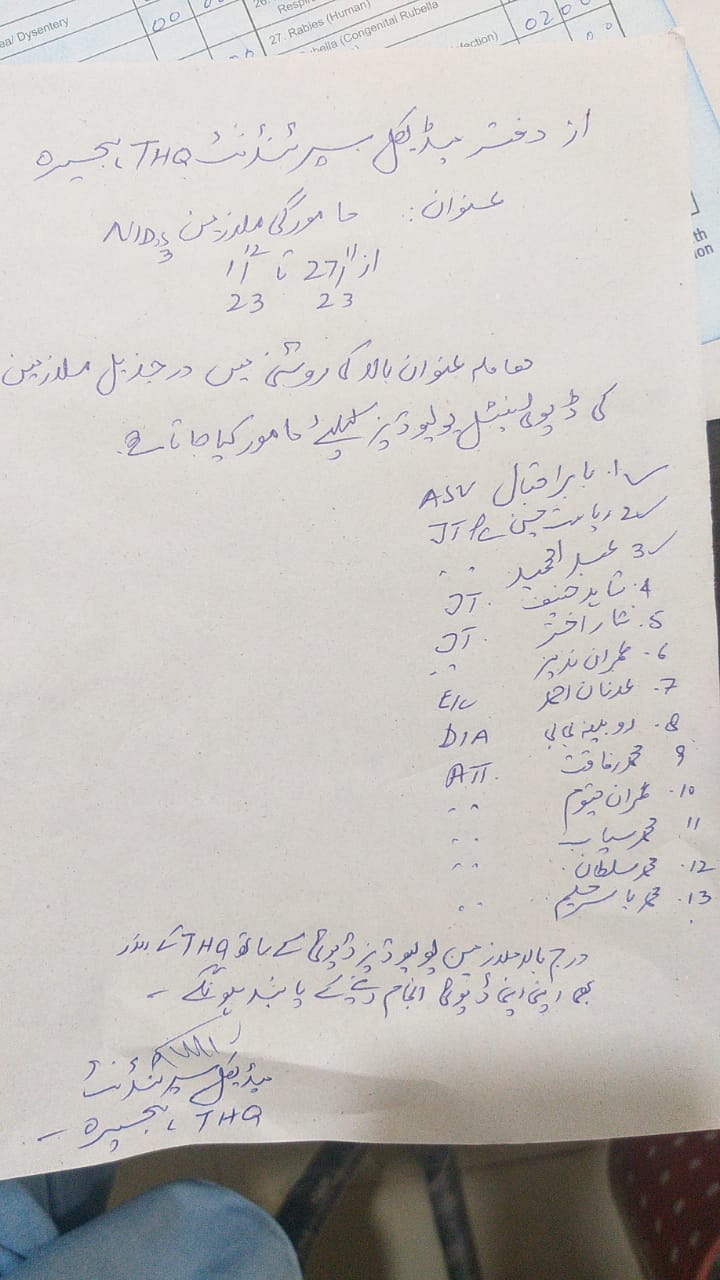 ea/ Dysentery
00
27. Rabies (Human)
bella (Congenital Rubella
fection)
020
از دفتر میڈیکل سپرنٹنڈنٹ THQ، ہجیرہ
عنوان: مامورگی ملازمین NIDs
از 27/11/23 تا 1/12/23
معاملہ عنوان بالا کی روشنی میں درج ذیل ملازمین
کی ڈیوٹی نیشنل پولیو ڈیز کیلئے مامور کیا جاتا ہے۔
1. بابر اقبال ASV
2. ریاست حسین JT
3. عبدالحمید 〃
4. شاہد حنیف JT.
5. نثار اختر JT.
6. عمران نذیر 〃
7. عدنان احمد
8. روبینہ بی بی DIA
9 محمد رفاقت ATT.
10. عمران قیوم 〃
11. محمد سیاب 〃
12. محمد سلطان 〃
13. محمد یاسر حلیم 〃
درج بالا ملازمین پولیو ڈیز ڈیوٹی کے ساتھ THQ کے اندر
بھی اپنی اپنی ڈیوٹی انجام دینے کے پابند ہونگے ۔
میڈیکل سپرنٹنڈنٹ
THQ، ہجیرہ ۔
th
on